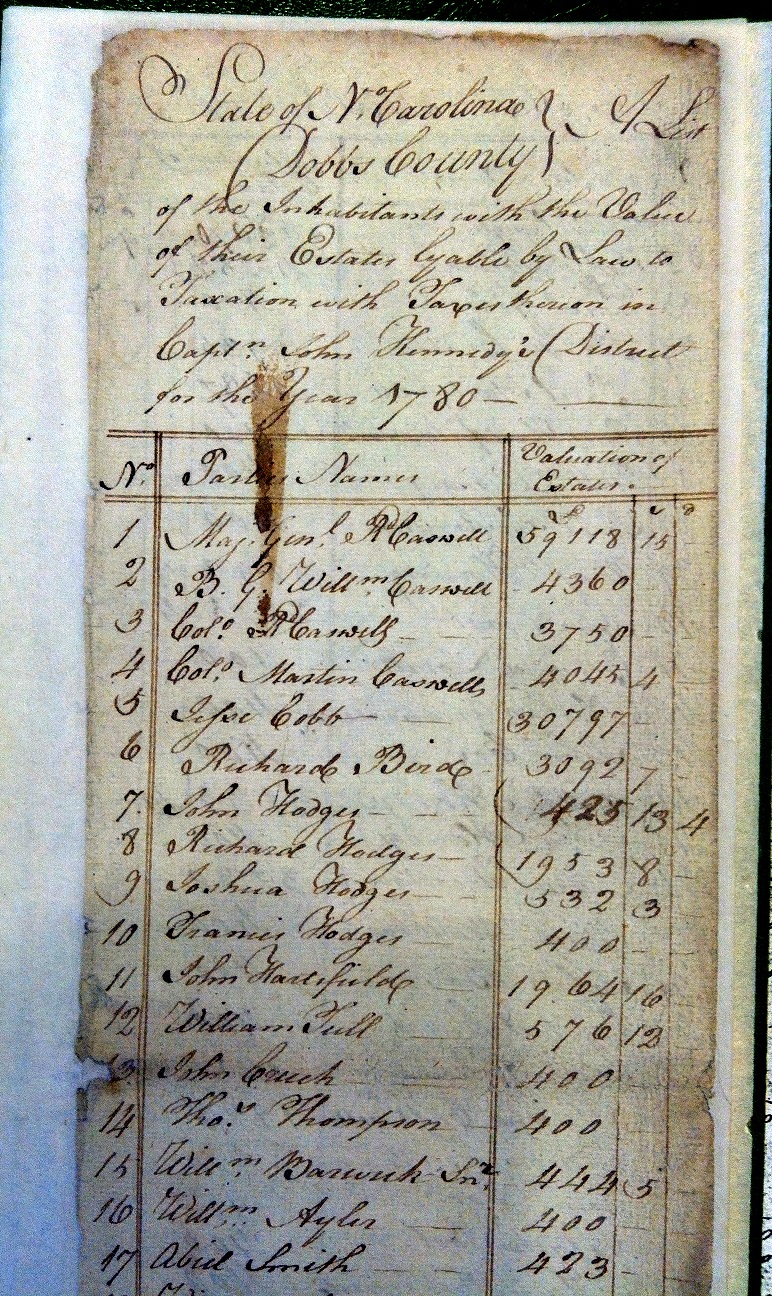 State of No. Carolina } A List
(Dobbs County)
of the Inhabitants with the Value
of their Estates lyable by Law to
Taxation with Taxes thereon in
Captn. John Kennedy's District
for the Year 1780 —
No. Parties Names Valuation of
Estates.
£ s d
1 Maj. Genl. Rd Caswell 59118 15 -
2 B. G. Willm. Caswell 4360 - -
3 Colo. R Caswell 3750 - -
4 Colo. Martin Caswell 4045 4 -
5 Jesse Cobb 30797 -
6 Richard Bird 3092 7 -
7. John Hodges 425 13 4
8 Richard Hodges 1953 8
9 Joshua Hodges 532 3
10 Francis Hodges 400 - -
11 John Hartsfield 1964 16
12 William Tull 576 12
13 John Creech 400 -
14 Thos. Thompson 400 -
15 Willm. Barwick Snr. 444 5
16 Willm. 400 -
17 Abid Smith 423 -